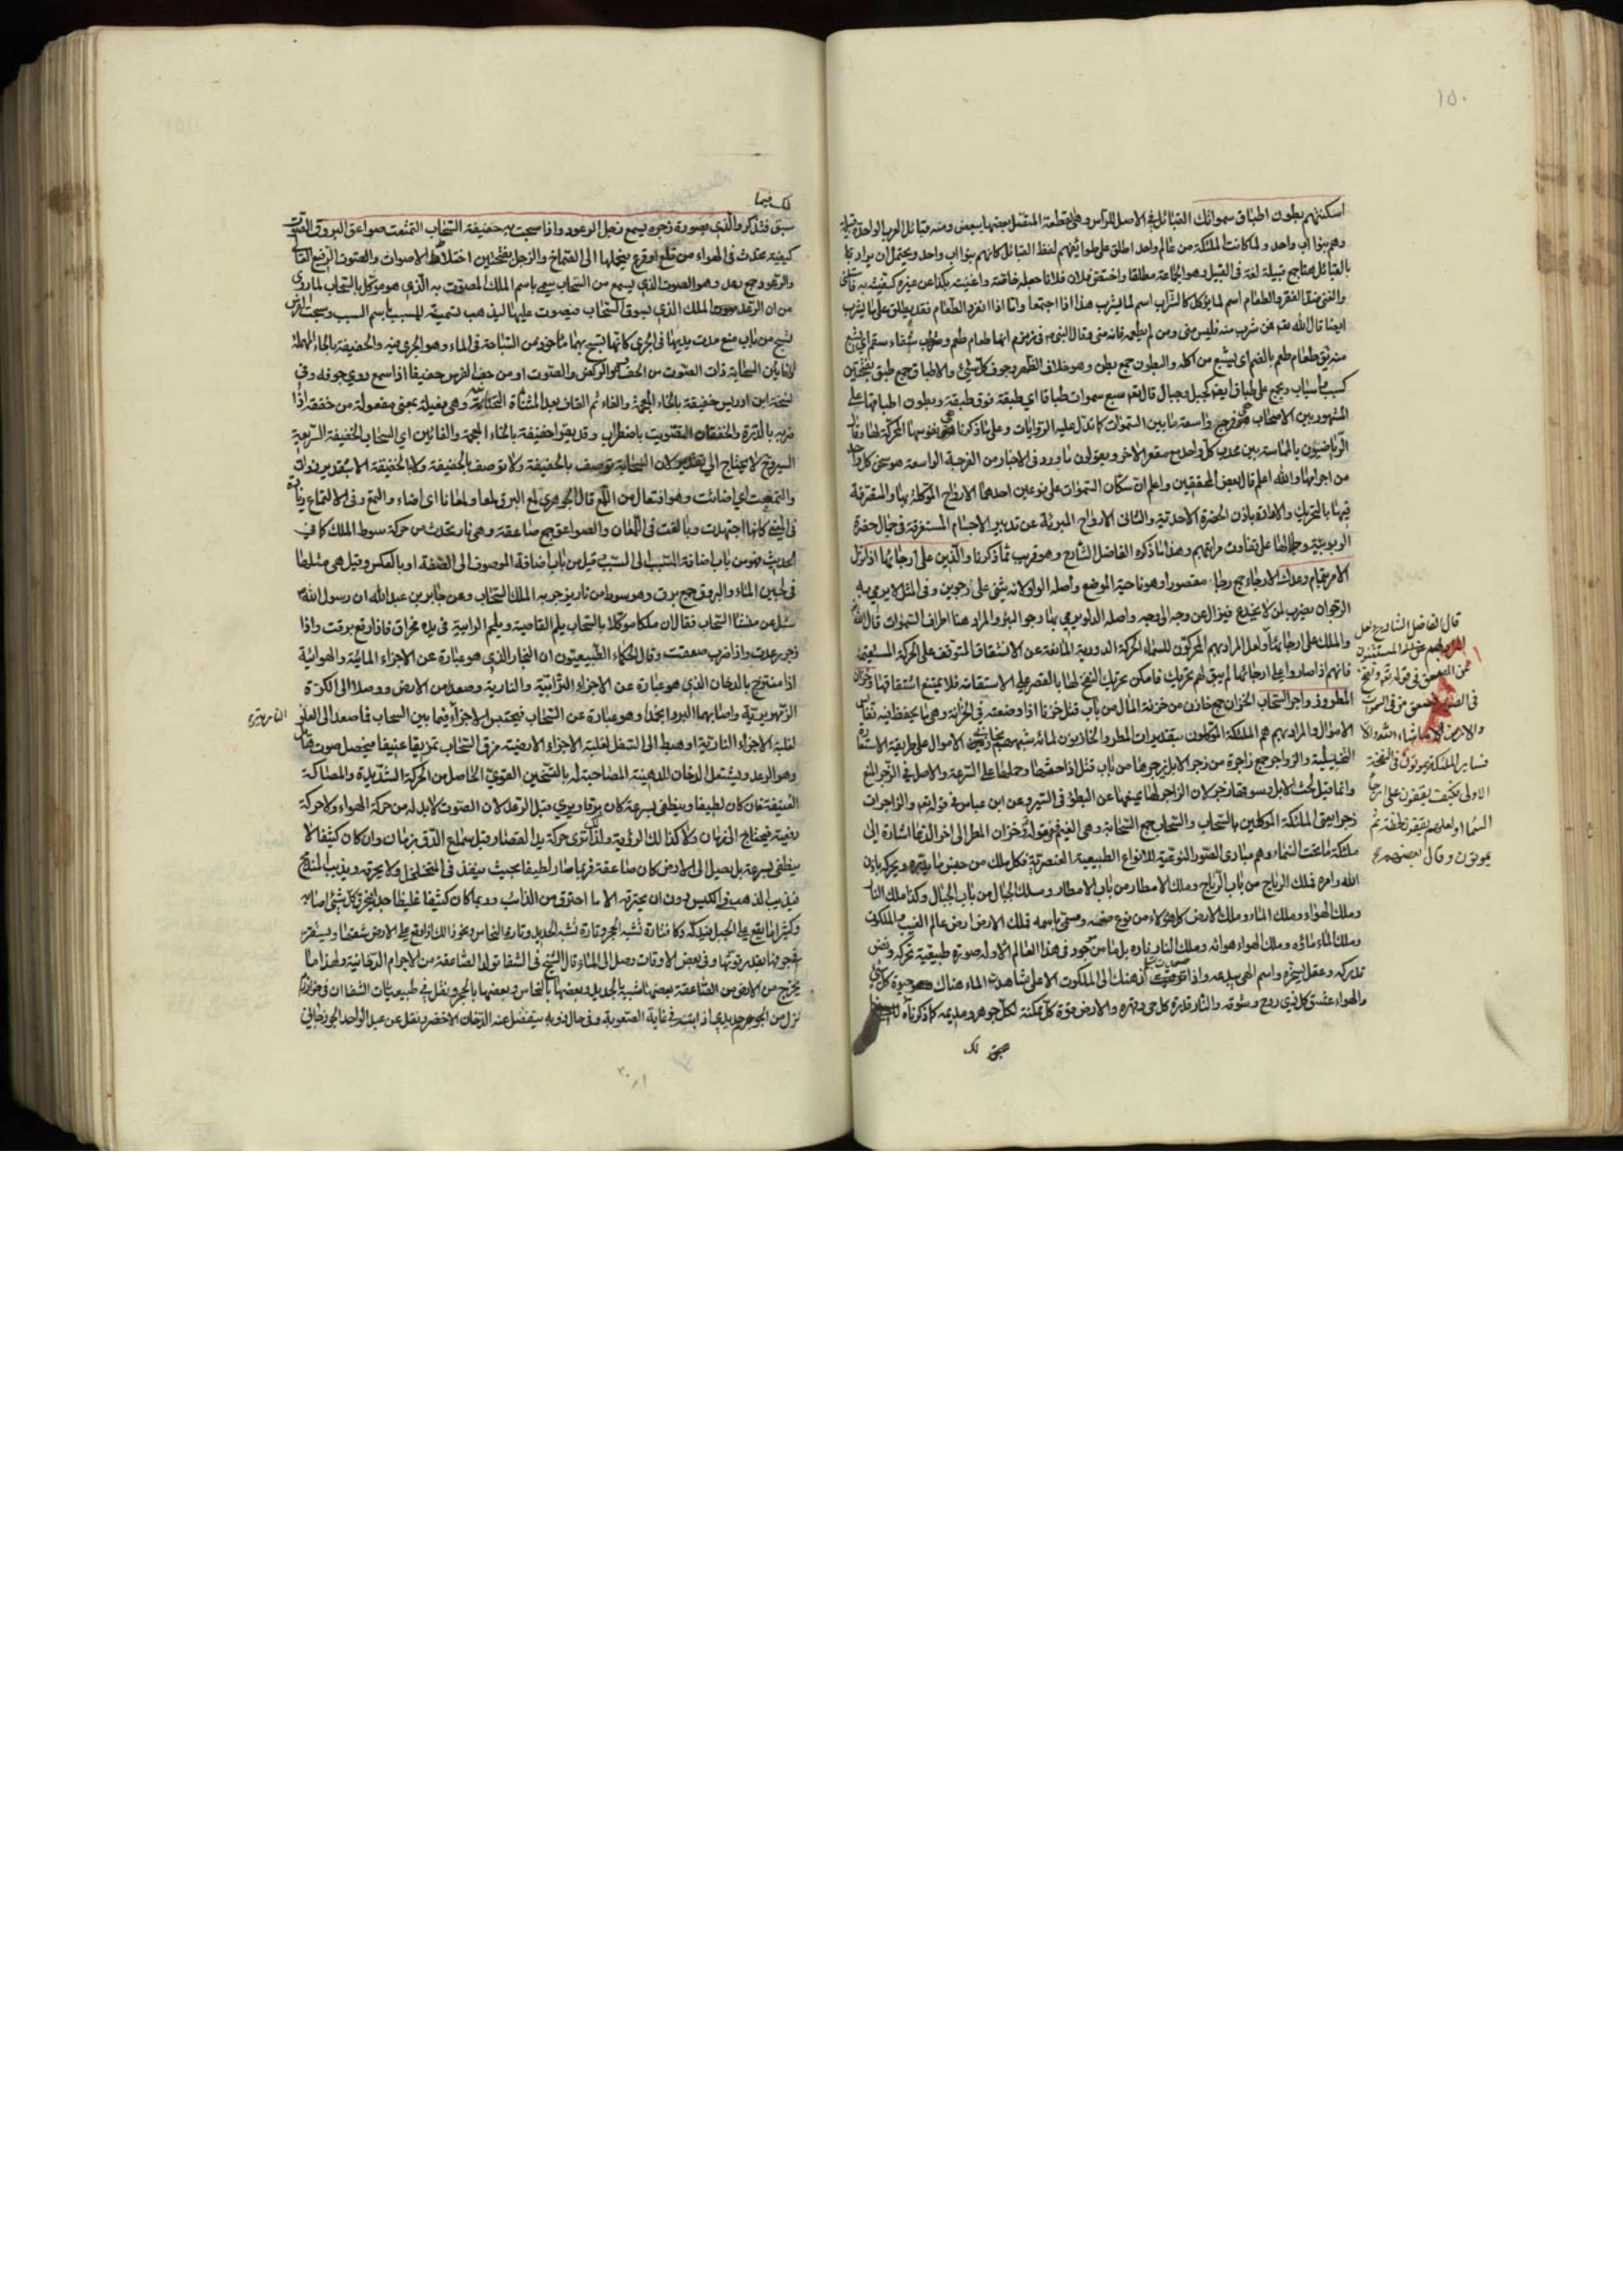 ١٥٠
اسكنتهم بطون اطباق سمواتك القبائل في الاصل للرأس وهي القطعة المتصل بعضها ببعض ومنه قبائل العرب الواحدة قبيلة
وهم بنوا اب واحد ولما كانت الملئكة من عالم واحد اطلق على طوائفهم لفظ القبائل كانهم بنوا اب واحد ويحتمل ان يراد بها
بالقبائل هنا جمع قبيلة لغة في القبيل وهو الجماعة مطلقا واختص فلان فلانا جعله خاصته واغنيته بكذا عن غيره كفيته به
والغنى ضد الفقر والطعام اسم لما يؤكل كالشراب اسم لما يشرب هذا اذا اجتمعا واما اذا انفرد الطعام فقد يطلق على ما يشرب
ايضا قال الله تعالى فمن شرب منه فليس مني ومن لم يطعمه فانه مني وقال النبي في زمزم انها طعام طعم وشفاء سقم اي يشبع
منه يق طعام طعم بالضم اي يشبع من اكله والبطون جمع بطن وهو خلاف الظهر وجوف كل شيء والاطباق جمع طبق بفتحتين
كسبب واسباب ويجمع على طباق ايضا كجبل وجبال قال تعالى سبع سموات طباقا اي طبقة فوق طبقة وبطون اطباقها على
المشهور بين الاصحاب فروج واسعة ما بين السموات كما تدل عليه الروايات وعلى ما ذكرنا نفوسها المحركة لها وقال
الرياضيون بالماسة بين محدب كل واحد مع مقعر الاخر ويقولون ما ورد في الاخبار من الفرجة الواسعة هو سخن كل واحد
من اجرامها والله اعلم قال بعض المحققين واعلم ان سكان السموات على نوعين احدهما الارواح الموكلة بها والمتصرفة
فيها بالتحريك والافادة باذن الحضرة الاحدية والثاني الارواح المبرئة عن تدبير الاجسام المستغرقة في جمال حضرة
الربوبية وجلالها على تفاوت مراتبهم وهذا ما ذكره الفاضل الشارح وهو قريب مما ذكرنا والذين على ارجائها اذا نزل
الامر بتمام وعدك الارجاء جمع رجا مقصورا وهو ناحية الموضع واصله الواو لانه يثنى على رجوين وفي المثل لا يرمى به
الرجوان يضرب لمن لا يخدع فيزال عن وجه الى وجه واصله الدلو يرمى بها رجوا البئر والمراد هنا اطراف السموات قال الله
والملك على ارجائها ولعل المراد بهم المحركون للسماء الحركة الدورية المانعة عن الانشقاق المتوقف على الحركة المستقيمة
فانهم اذا صاروا على ارجائها لم يبق لهم تحريك فامكن تحريك النفخ لها بالقصر على الاستقامة فلا يمتنع انشقاقها وخزان
المطر وزواجر السحاب الخزان جمع خازن من خزنت المال من باب قتل خزنا اذا وضعته في الخزانة وهي ما يحفظ فيه نفائس
الاموال والمراد بهم هم الملئكة الموكلون بتقديرات المطر والخازنون لمائه شبههم بخازني الاموال على طريقة الاستعارة
التخييلية والزواجر جمع زاجرة من زجر الابل يزجرها من باب قتل اذا حثها وحملها على السرعة والاصل في الزجر المنع
وانما قيل لحث الابل وسوقها زجر لان الزاجر لها يمنعها عن البطؤ في السير وعن ابن عباس في قوله تعالى والزاجرات
زجرا يعني الملئكة الموكلين بالسحاب والسحاب جمع السحابة وهي الغيم وقوله وخزان المطر الى اخر الدعاء اشارة الى
ملئكة ما تحت السماء وهم مبادي الصور النوعية للانواع الطبيعية العنصرية فكل ملك من جنس ما يدبره ويحركه باذن
الله وامره فملك الرياح من باب الرياح وملك الامطار من باب الامطار وملك الجبال من باب الجبال وكذا ملك النار
وملك الهواء وملك الماء وملك الارض كل هؤلاء من نوع صنعه ومسمى باسمه فملك الارض ارض عالم الغيب والملكوت
وملك الماء ماؤه وملك الهواء هوائه وملك النار ناره بل ما من موجود في هذا العالم الا وله صورة طبيعية تحركه ونفس
تدركه وعقل يسخره واسم الهي يبدعه واذا ترقيت بذهنك الى الملكوت الاعلى شاهدت الماء هناك حيوة كل شيء
والهواء عشق كل ذي روح وشوقه والنار قدرة كل حي وقهره والارض قوة كل ممكنة لكل جوهر ومديمه كما ذكرناه
لك
قال الفاضل الشارح لعل
المراد بهم هم الملئكة المستثنون
من الصعق في قوله تعالى ونفخ
في الصور فصعق من في السموات
والارض الا من شاء الله والا
فساير الملئكة يموتون في النفخة
الاولى فكيف يقفون على ارجاء
السماء او لعلهم يقفون لحظة ثم
يموتون وقال بعضهم
لك فيما
سبق فتذكر والذي بصوت زجره يسمع زجل الرعود واذا سبحت به حفيفة السحاب التمعت صواعق البروق الصوت
كيفية تحدث في الهواء من قلع او قرع يحملها الى الصماخ والزجل بفتحتين اختلاط الاصوات والصوت الرفيع العالي
والرعود جمع رعد وهو الصوت الذي يسمع من السحاب سمي باسم الملك المصوت به الذي هو موكل بالسحاب لما روي
من ان الرعد صوت الملك الذي يسوق السحاب فيصوت عليها ليذهب تسمية للمسبب باسم السبب وسبحت الفرس
تسبح من باب منع مدت يديها في الجري كانها تسبح بهما مأخوذ من السباحة في الماء وهو الجري فيه والحفيفة بالحاء المهملة
الفائين السحابة ذات الصوت من الحف وهو الركض والصوت او من حف الفرس حفيفا اذا سمع دوي جوفه وفي
نسخة ابن ادريس خفيقة بالخاء المعجمة والفاء ثم القاف بعد المثناة التحتانية وهي فعيلة بمعنى مفعولة من خفقه اذا
ضربه بالدرة والخفقان التصويت باضطراب وقد يقرأ خفيفة بالخاء المعجمة والفائين اي السحاب الخفيفة السريعة
السير وح لا يحتاج الى تقدير لان السحابة توصف بالخفيفة ولا توصف بالحفيفة ولا بالخفيقة الا بتقدير ذوات
والتمعت اي اضائت وهو افتعال من اللمع قال الجوهري لمع البرق لمعا ولمعانا اي اضاء والتمع وفي الالتماع زيادة
في المعنى كانها اجتهدت وبالغت في اللمعان والصواعق جمع صاعقة وهي نار تحدث من حركة سوط الملك كما في
الحديث فهو من باب اضافة المسبب الى السبب وقيل من باب اضافة الموصوف الى الصفة او بالعكس وقيل هي مثلها
في لجين الماء والبروق جمع برق وهو سوط من نار يزجر به الملك السحاب وعن جابر بن عبد الله ان رسول الله
سئل عن منشأ السحاب فقال ان ملكا موكلا بالسحاب يلم القاصية ويلحم الرابية في يده مخراق فاذا رفع برقت واذا
زجر رعدت واذا ضرب صعقت وقال الحكماء الطبيعيون ان البخار الذي هو عبارة عن الاجزاء المائية والهوائية
اذا امتزج بالدخان الذي هو عبارة عن الاجزاء الترابية والنارية وصعدا من الارض ووصلا الى الكرة
الزمهريرية واصابهما البرد انجمدا وهو عبارة عن السحاب فيحتبس الاجزاء فيما بين السحاب فما صعد الى العلو
لغلبة الاجزاء النارية او هبط الى السفل لغلبة الاجزاء الارضية مزق السحاب تمزيقا عنيفا فيحصل صوت هائل
وهو الرعد ويشتعل الدخان للدهنية المصاحبة له بالتسخين القوي الحاصل من الحركة الشديدة والمصاكة
العنيفة فان كان لطيفا وينطفي بسرعة كان برقا ويرى قبل الرعد لان الصوت لابد له من حركة الهواء ولا حركة
دفعية فيحتاج الى زمان ولا كذلك الرؤية ولذلك ترى حركة يد القصار قبل سماع الدق بزمان وان كان كثيفا لا
ينطفي بسرعة بل يصل الى الارض كان صاعقة فربما صار لطيفا بحيث ينفذ في المتخلخل ولا يحرقه ويذيب المندمج
فيذيب الذهب في الكيس دون ان يحرقه الا ما احترق من الذائب وربما كان كثيفا غليظا جدا فيحرق كل شيء اصابه
وكثيرا ما يقع على الجبل فيدكه دكا فتارة تشبه الحجر وتارة تشبه الحديد وتارة النحاس ونحو ذلك
يخرج من الارض من الصاعقة بعضها شبيه بالحديد وبعضها بالنحاس وبعضها بالحجر ونقل في طبيعيات الشفا ان في